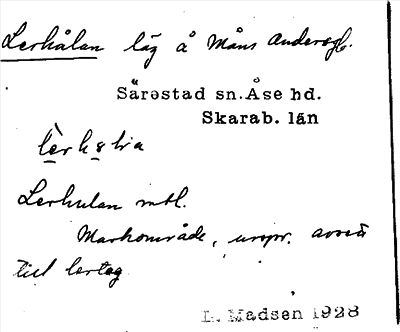 Lerhålan låg å Måns Andersgb.
Särestad sn. Åse hd.
Skarab. län
Lerhulan mbl.
Markområde, urspr. avsett
till lertag
D. Madsen 1928